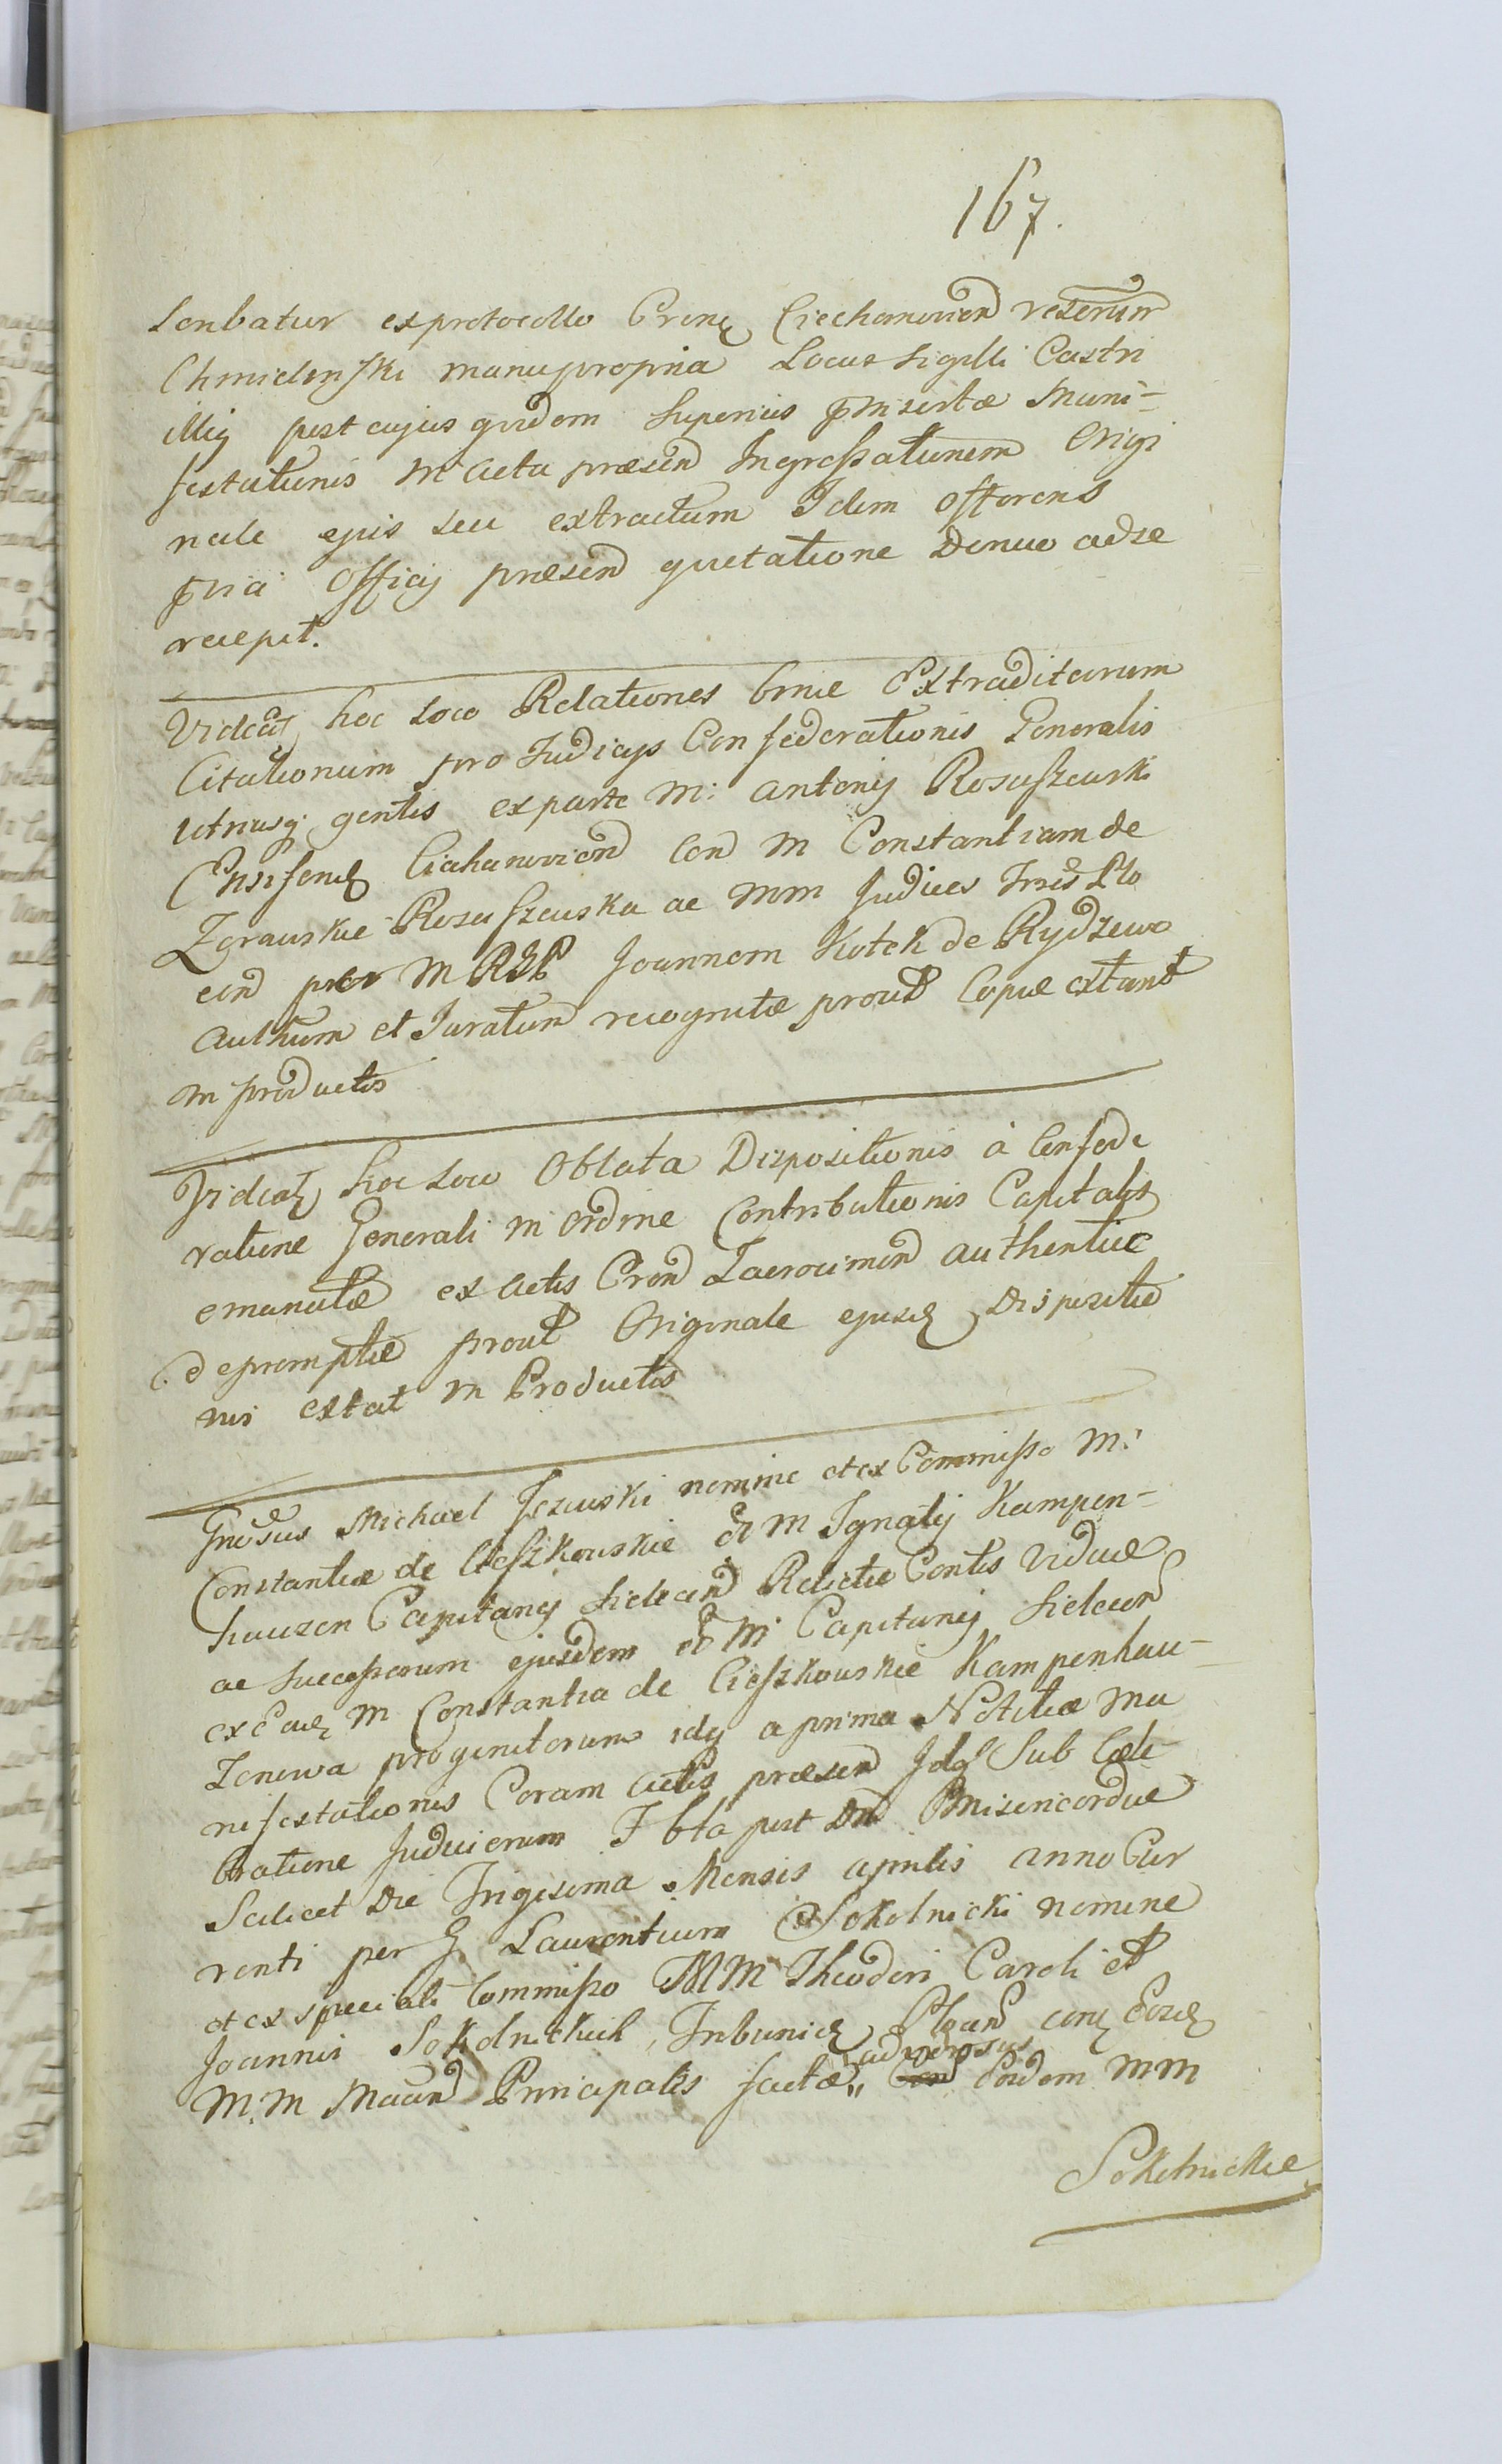 167.
Scribatur ex protocollo Crenẹ Ciechanovien̄ reserūr
Chmieleńſki manu propria Locus Sigilli Castri
illiỹ post cujus quidem Superius p̱insertæ Mani-
festationis in Acta præsen̄ Ingroſsationem Origi
nale ejus seu extractum Idem offerens
p̱via Officij præsen̄ quietatione Denuo ad se
recepit.
Videat̄ hoc Loco Relationes Crnie Extraditarum
Citationum pro Judicijs Confederationis Generalis
utriusq; gentis ex parte M: Antonij Rosuſzewski
Ensifenẹ Ciechanovien̄ Con M Constantiam de
Zorawskie Rosuſzewska ac MM Judices Trrēs Plo
cen̄ per M Joannem Kotek de Rydzewo
Authum et Juratum recognitæ prout Copiæ extant
in productis
Videat̄ hoc Loco Oblata Dispositionis à Confede
ratione Generali in Ordine Contributionis Capitalis
emanatæ ex Actis Cren̄ Zacrocimen̄ authentice
depromptæ prout Originale ejusd̄ Dispositio
nis extat in Productis
Gn̄ēsus Michael Jezewski nomine et ex Commiſso M:
Constantiæ de Cieſzkowskie ōl M Ignatij Kampen-
hauzen Capitanej Sielecen̄ Relictæ Contis Viduæ
ac Succeſsorum ejusdem ōl M Capitanej Sielecen̄
ex Ead̄ M Constantia de Cieſzkowskie Kampenhau-
zenowa progenitorum idq̄ a prima Notitia Ma
nifestationis Coram Actis præsen̄ Idq̄ Sub Cele-
bratione Judiciorum F bta post Dnīc Misericordiæ
Scilicet Die Trigesima Mensis Aprilis Anno Cur
renti per G Laurentium Sokolnicki nomine
et ex speciali Commiſso MM Theodori Caroli et
Joannis Sokolnickich, Tribunid̄ Plocen̄
M.M Maan̄ Principalis factæ „ adversus Eosdem MM
Sokolnickie